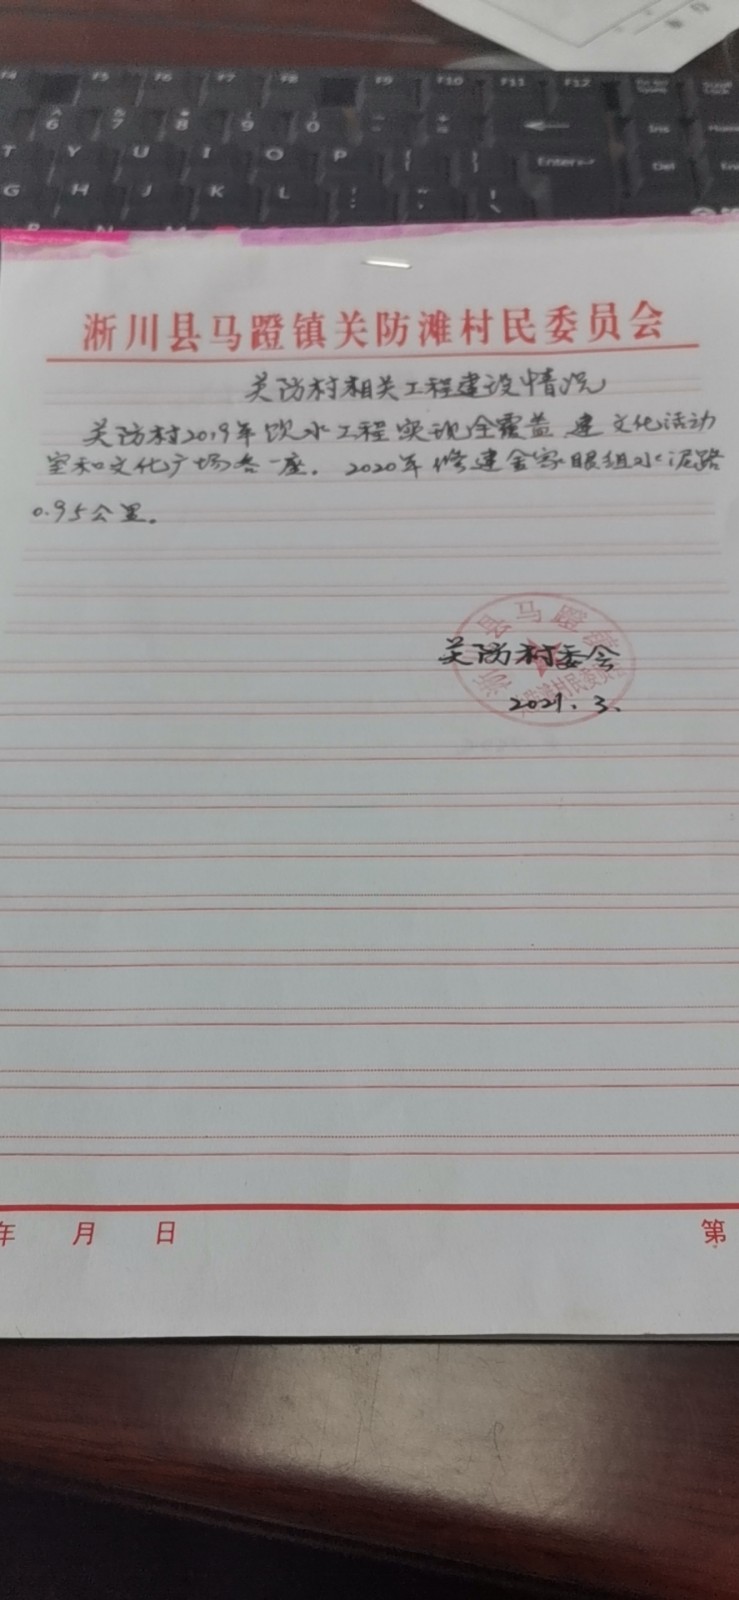 F5 F6 F7 F8 F9 F10 F11 F12
6 7 8 9 0
T Y U I O P Enter Del
G H J K L
淅川县马蹬镇关防滩村民委员会
关防村相关工程建设情况
关防村2019年饮水工程实现全覆盖 建 文化活动
室和文化广场各一座. 2020年修建金家眼组水泥路
0.95公里。
淅川县马蹬镇关防滩村民委员会
关防村委会
2021.3.
年 月 日 第